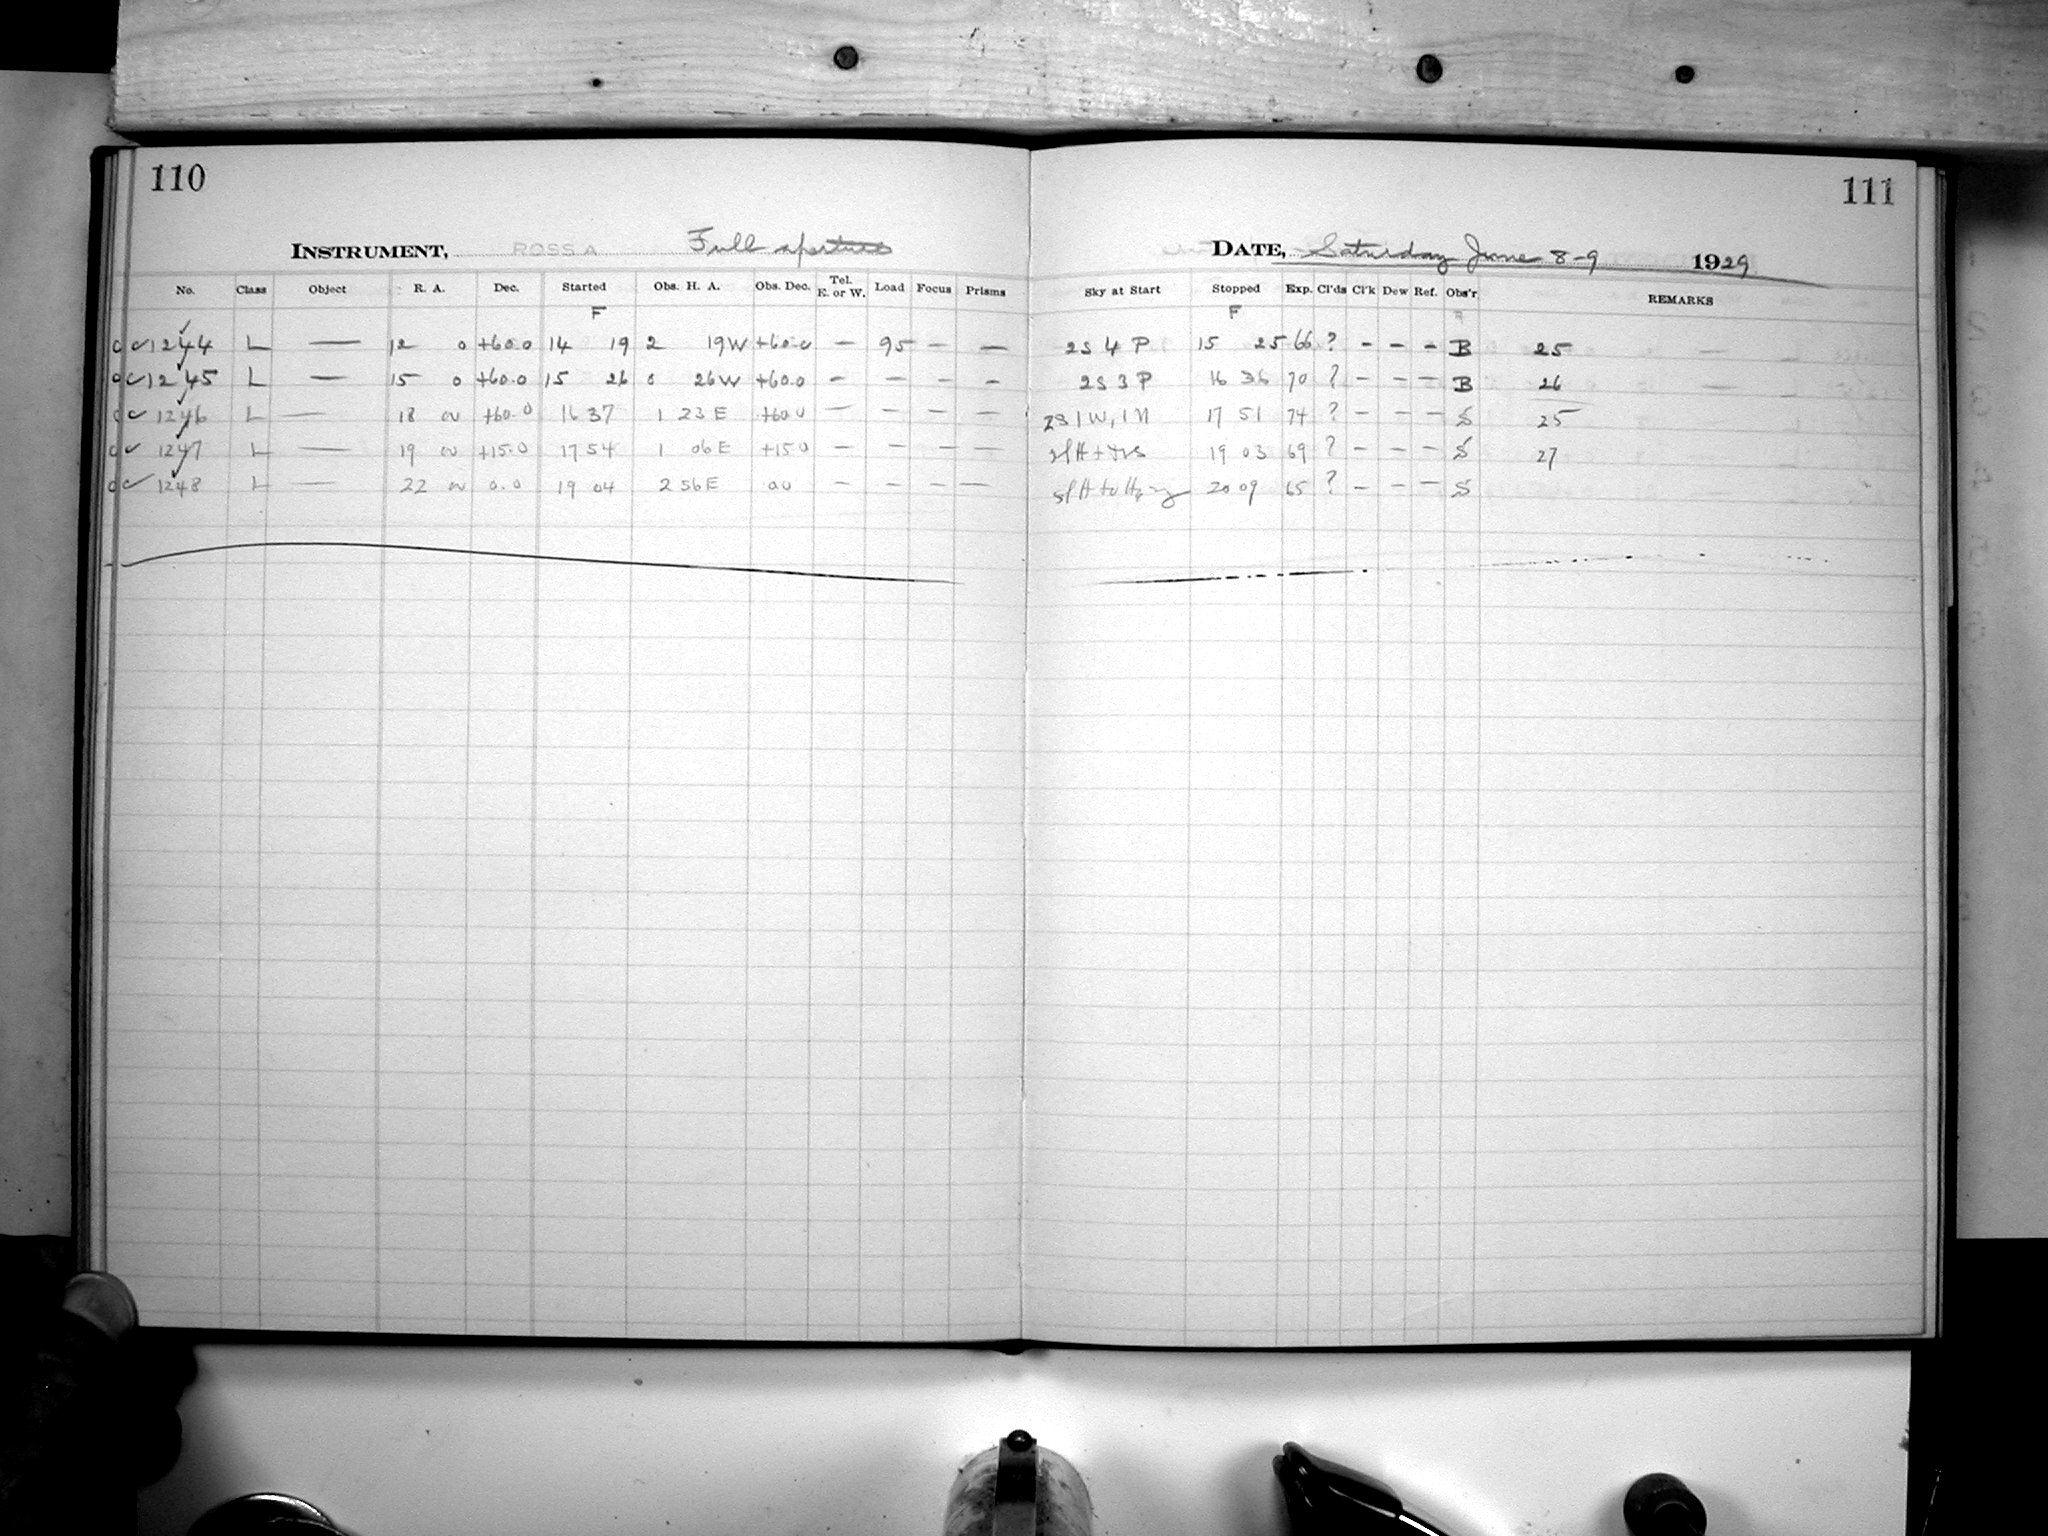 110
111
INSTRUMENT, ROSS A Full aperture
DATE, Saturday June 8-9 1929
No. Class Object R. A. Dec. Started Obs. H. A. Obs. Dec. Tel. E. or W. Load Focus Prisms Sky at Start Stopped Exp. Cl'ds Cl'k Dew Ref. Obs'r REMARKS
F F
1244 L — 12 0 +60.0 14 19 2 19W +60.0 — 95 — — 2S 4 P 15 25 66 ? - - - B 25
1245 L — 15 0 +60.0 15 26 0 26W +60.0 - — - - 2S 3 P 16 36 70 ? - - - B 26
1246 L — 18 0 +60.0 16 37 1 23 E +60.0 — — — — 2S 1 W, 1 N 17 51 74 ? - - - S 25
1247 L — 19 0 +15.0 17 54 1 06 E +15.0 — — — — 19 03 69 ? - - - S 27
1248 L — 22 0 0.0 19 04 2 56 E 0.0 — — — — 20 09 65 ? - - - S